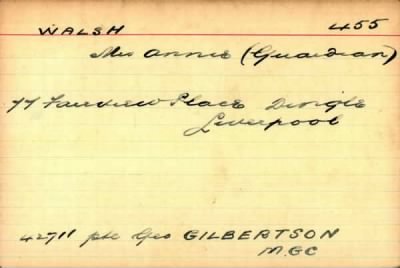 WALSH 455
Mrs Annie (Guardian)
77 Fairview Place Dingle
Liverpool
42711 pte Geo GILBERTSON
M.G.C